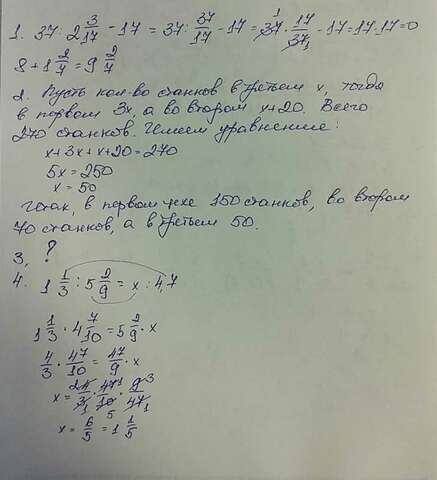 1. 37 : 2 3/17 - 17 = 37 : 37/17 - 17 = 37 · 17/37 - 17 = 17·17=0
8 + 1 2/7 = 9 2/7
2. Пусть кол-во станков в третьем x, тогда
в первом 3x, а во втором x+20. Всего
270 станков. Имеем уравнение:
x+3x+x+20=270
5x=250
x=50
Итак, в первом цехе 150 станков, во втором
70 станков, а в третьем 50.
3. ?
4. 1 1/3 : 5 2/9 = x : 4,7
1 1/3 · 4 7/10 = 5 2/9 · x
4/3 · 47/10 = 47/9 · x
x = 4/3 · 47/10 · 9/47
x = 6/5 = 1 1/5